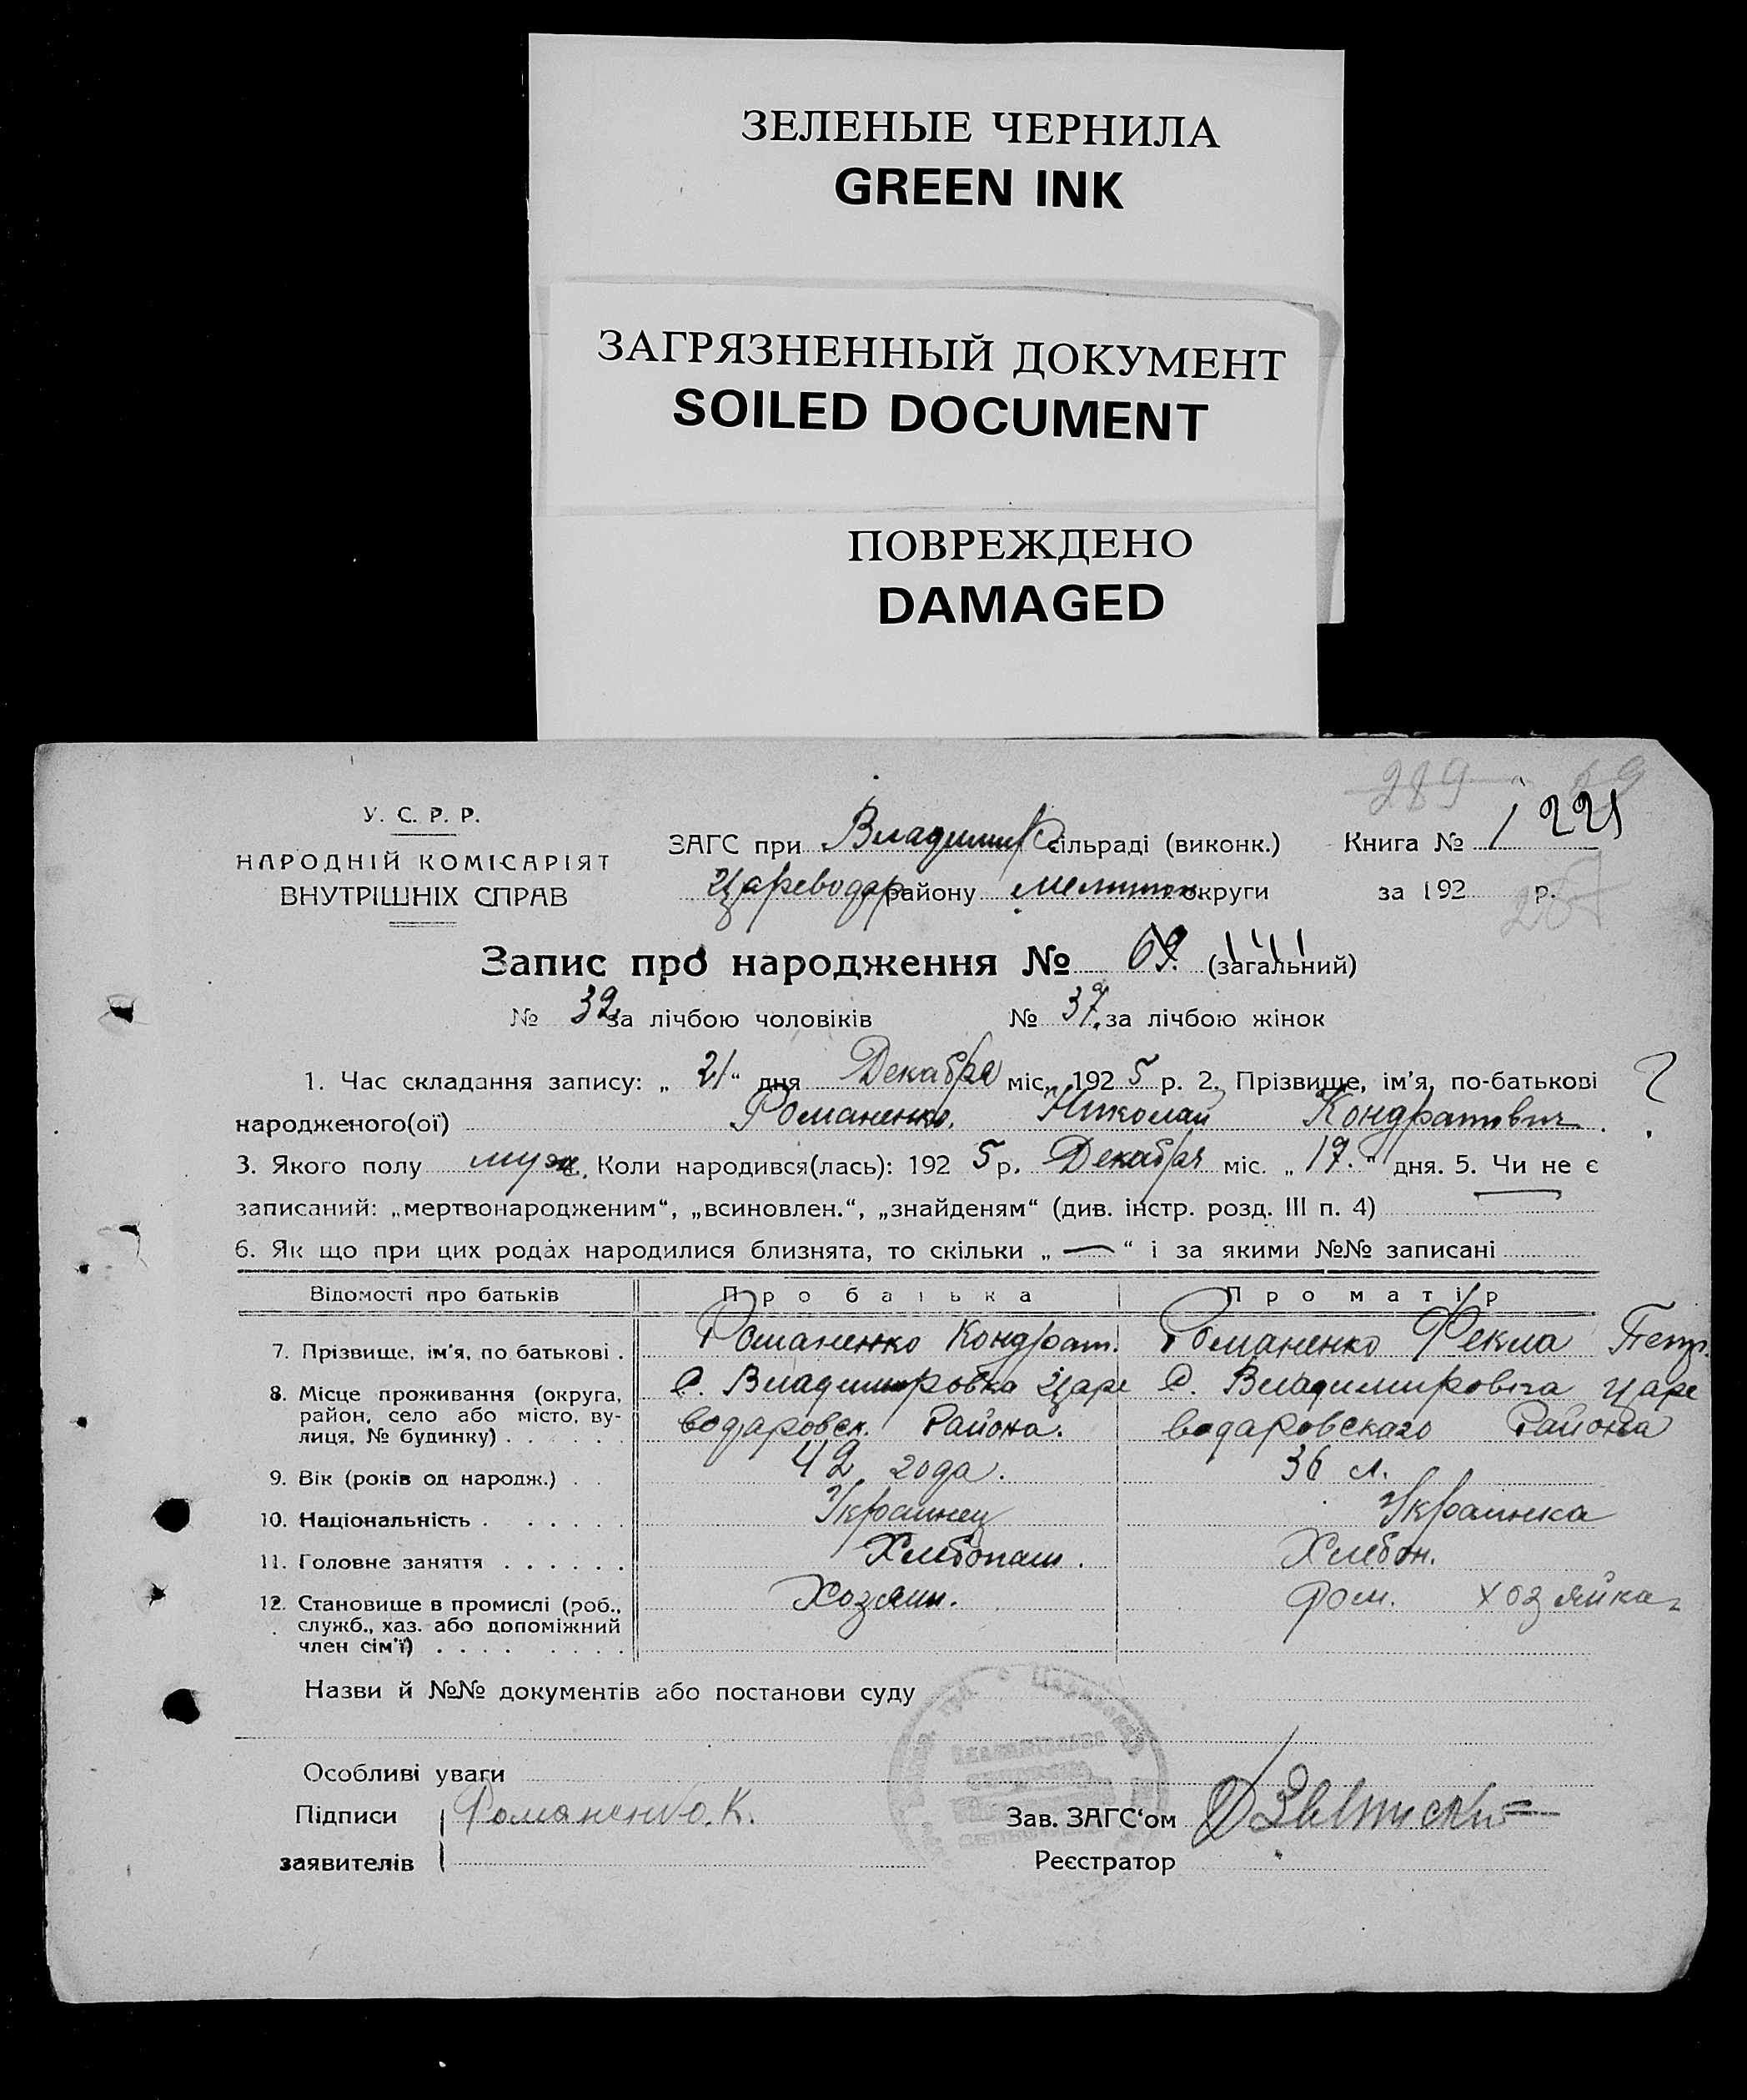 ЗЕЛЕНЫЕ ЧЕРНИЛА
GREEN INK
ЗАГРЯЗНЕННЫЙ ДОКУМЕНТ
SOILED DOCUMENT
ПОВРЕЖДЕНО
DAMAGED
289
У. С. Р. Р.
НАРОДНІЙ КОМІСАРІЯТ
ВНУТРІШНІХ СПРАВ
ЗАГС при Владимир сільраді (виконк.) Книга № 1 221
Цареводар району Мелитоп. округи за 192 р.
Запис про народження № 69. (загальний)
№ 32 за лічбою чоловіків № 37. за лічбою жінок
1. Час складання запису: „ 21 “ дня Декабря міс. 192 5 р. 2. Прізвище, ім'я, по-батькові ?
народженого(ої) Романенко. Николай Кондратович.
3. Якого полу муж. Коли народився(лась): 192 5 р. Декабря міс. „ 17. “ дня. 5. Чи не є
записаний: „мертвонародженим“, „всиновлен.“, „знайденям“ (див. інстр. розд. III п. 4)
6. Як що при цих родах народилися близнята, то скільки „ — “ і за якими №№ записані
Відомості про батьків Про батька Про матір
7. Прізвище, ім'я, по батькові . Романенко Кондрат. Романенко Фекла Петр.
8. Місце проживання (округа, с. Владимировка Царе с. Владимировка Царе
район, село або місто, ву- водаровск. Района. водаровскаго Района
лиця, № будинку) . . . . .
9. Вік (років од народж.) . . 42 года. 36 л.
10. Національність . . . . . . Украинец Украинка
11. Головне заняття . . . . . . Хлебопаш. Хлебоп.
12. Становище в промислі (роб., Хозяин. дом. хозяйка
служб., хаз. або допоміжний
член сім'ї) . . . . . . . .
Назви й №№ документів або постанови суду
Особливі уваги
Підписи Романенко. К. Зав. ЗАГС‘ом
заявителів Реєстратор